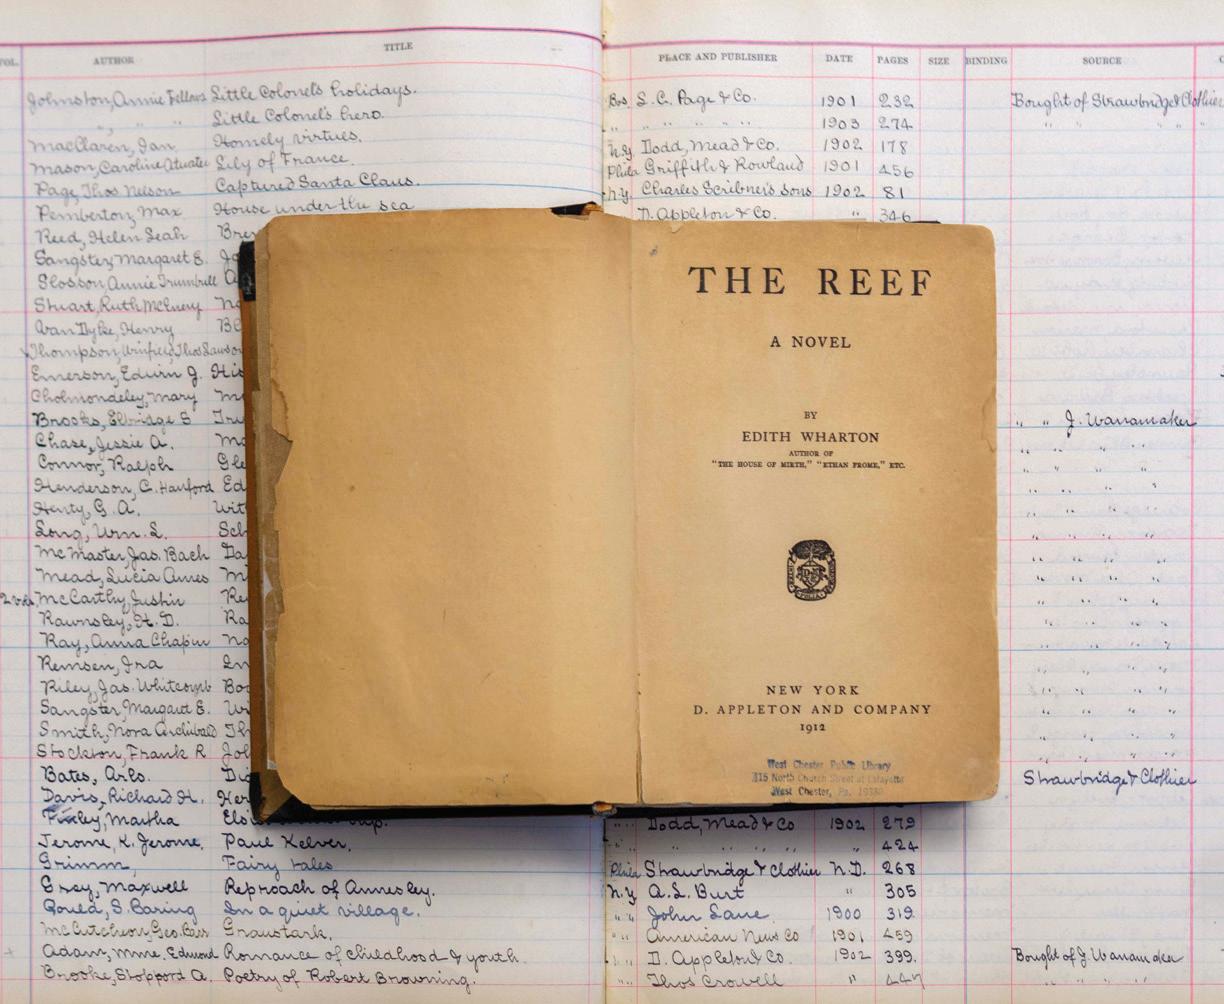 VOL. AUTHOR TITLE PLACE AND PUBLISHER DATE PAGES SIZE BINDING SOURCE
Johnston, Annie Fellows Little Colonel's holidays. Bos. L.C. Page & Co. 1901 232 Bought of Strawbridge & Clothier
" " " Little Colonel's hero. " " " " " 1903 274 " " " "
MacClaren, Ian Homely virtues. N.Y. Dodd, Mead & Co. 1902 178
Mason, Caroline Atwater Lily of France. Phila Griffith & Rowland 1901 456
Page, Thos Nelson Captured Santa Claus. N.Y. Charles Scribner's sons 1902 81
Pemberton, Max House under the sea D. Appleton & Co. " 346
Reed, Helen Leah Bre
Sangster, Margaret E.
Slosson, Annie Trumbull
Stuart, Ruth McEnery
Van Dyke, Henry
Thompson, Winfield, Thos Lawson
Emerson, Edwin J. His
Cholmondeley, Mary
Brooks, Elbridge S " " J. Wanamaker
Chase, Jessie A. " " "
Connor, Ralph Gle " " "
Henderson, C. Hanford Ed " " "
Henty, G. A. Wit " " "
Long, Wm. L. Sch " " "
McMaster, Jas. Bach Da " " "
Mead, Lucia Ames " " "
2 vols. McCarthy, Justin " " "
Rawnsley, H. D. Ra " " "
Ray, Anna Chapin " " "
Remsen, Ira " " "
Riley, Jas. Whitcomb " " "
Sangster, Margaret E. " " "
Smith, Nora Archibald " " "
Stockton, Frank R " " "
Bates, Arlo. Strawbridge & Clothier
Davis, Richard H. Her
Finley, Martha Dodd, Mead & Co 1902 279
Jerome, K. Jerome. Paul Kelver. " " " 424
Grimm, Fairy tales Phila Strawbridge & Clothier N.D. 268
Gray, Maxwell Reproach of Annesley. N.Y. A.L. Burt " 305
Gould, S. Baring In a quiet village. " " John Lane 1900 319
McCutcheon, Geo. Barr Graustark. " " American News Co 1901 459
+ Adam, Mme. Edmond Romance of childhood & youth. " " D. Appleton & Co. 1902 399. Bought of J. Wanamaker
Brooke, Stopford A. Poetry of Robert Browning. " " Thos Crowell " 447 " " "
THE REEF
A NOVEL
BY
EDITH WHARTON
AUTHOR OF
"THE HOUSE OF MIRTH," "ETHAN FROME," ETC.
NEW YORK
D. APPLETON AND COMPANY
1912
West Chester Public Library
415 North Church Street at Lafayette
West Chester, Pa. 19380